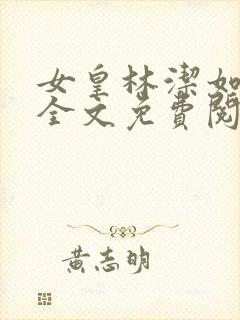 女皇林潔如
全文免費閱
黃志明